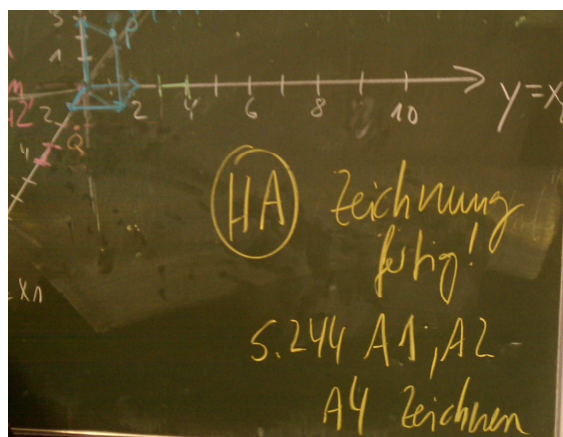 3
P
1
2 4 6 8 10
y=x
2
Q
4
x1
HA Zeichnung
fertig!
S.244 A1, A2
A4 Zeichnen